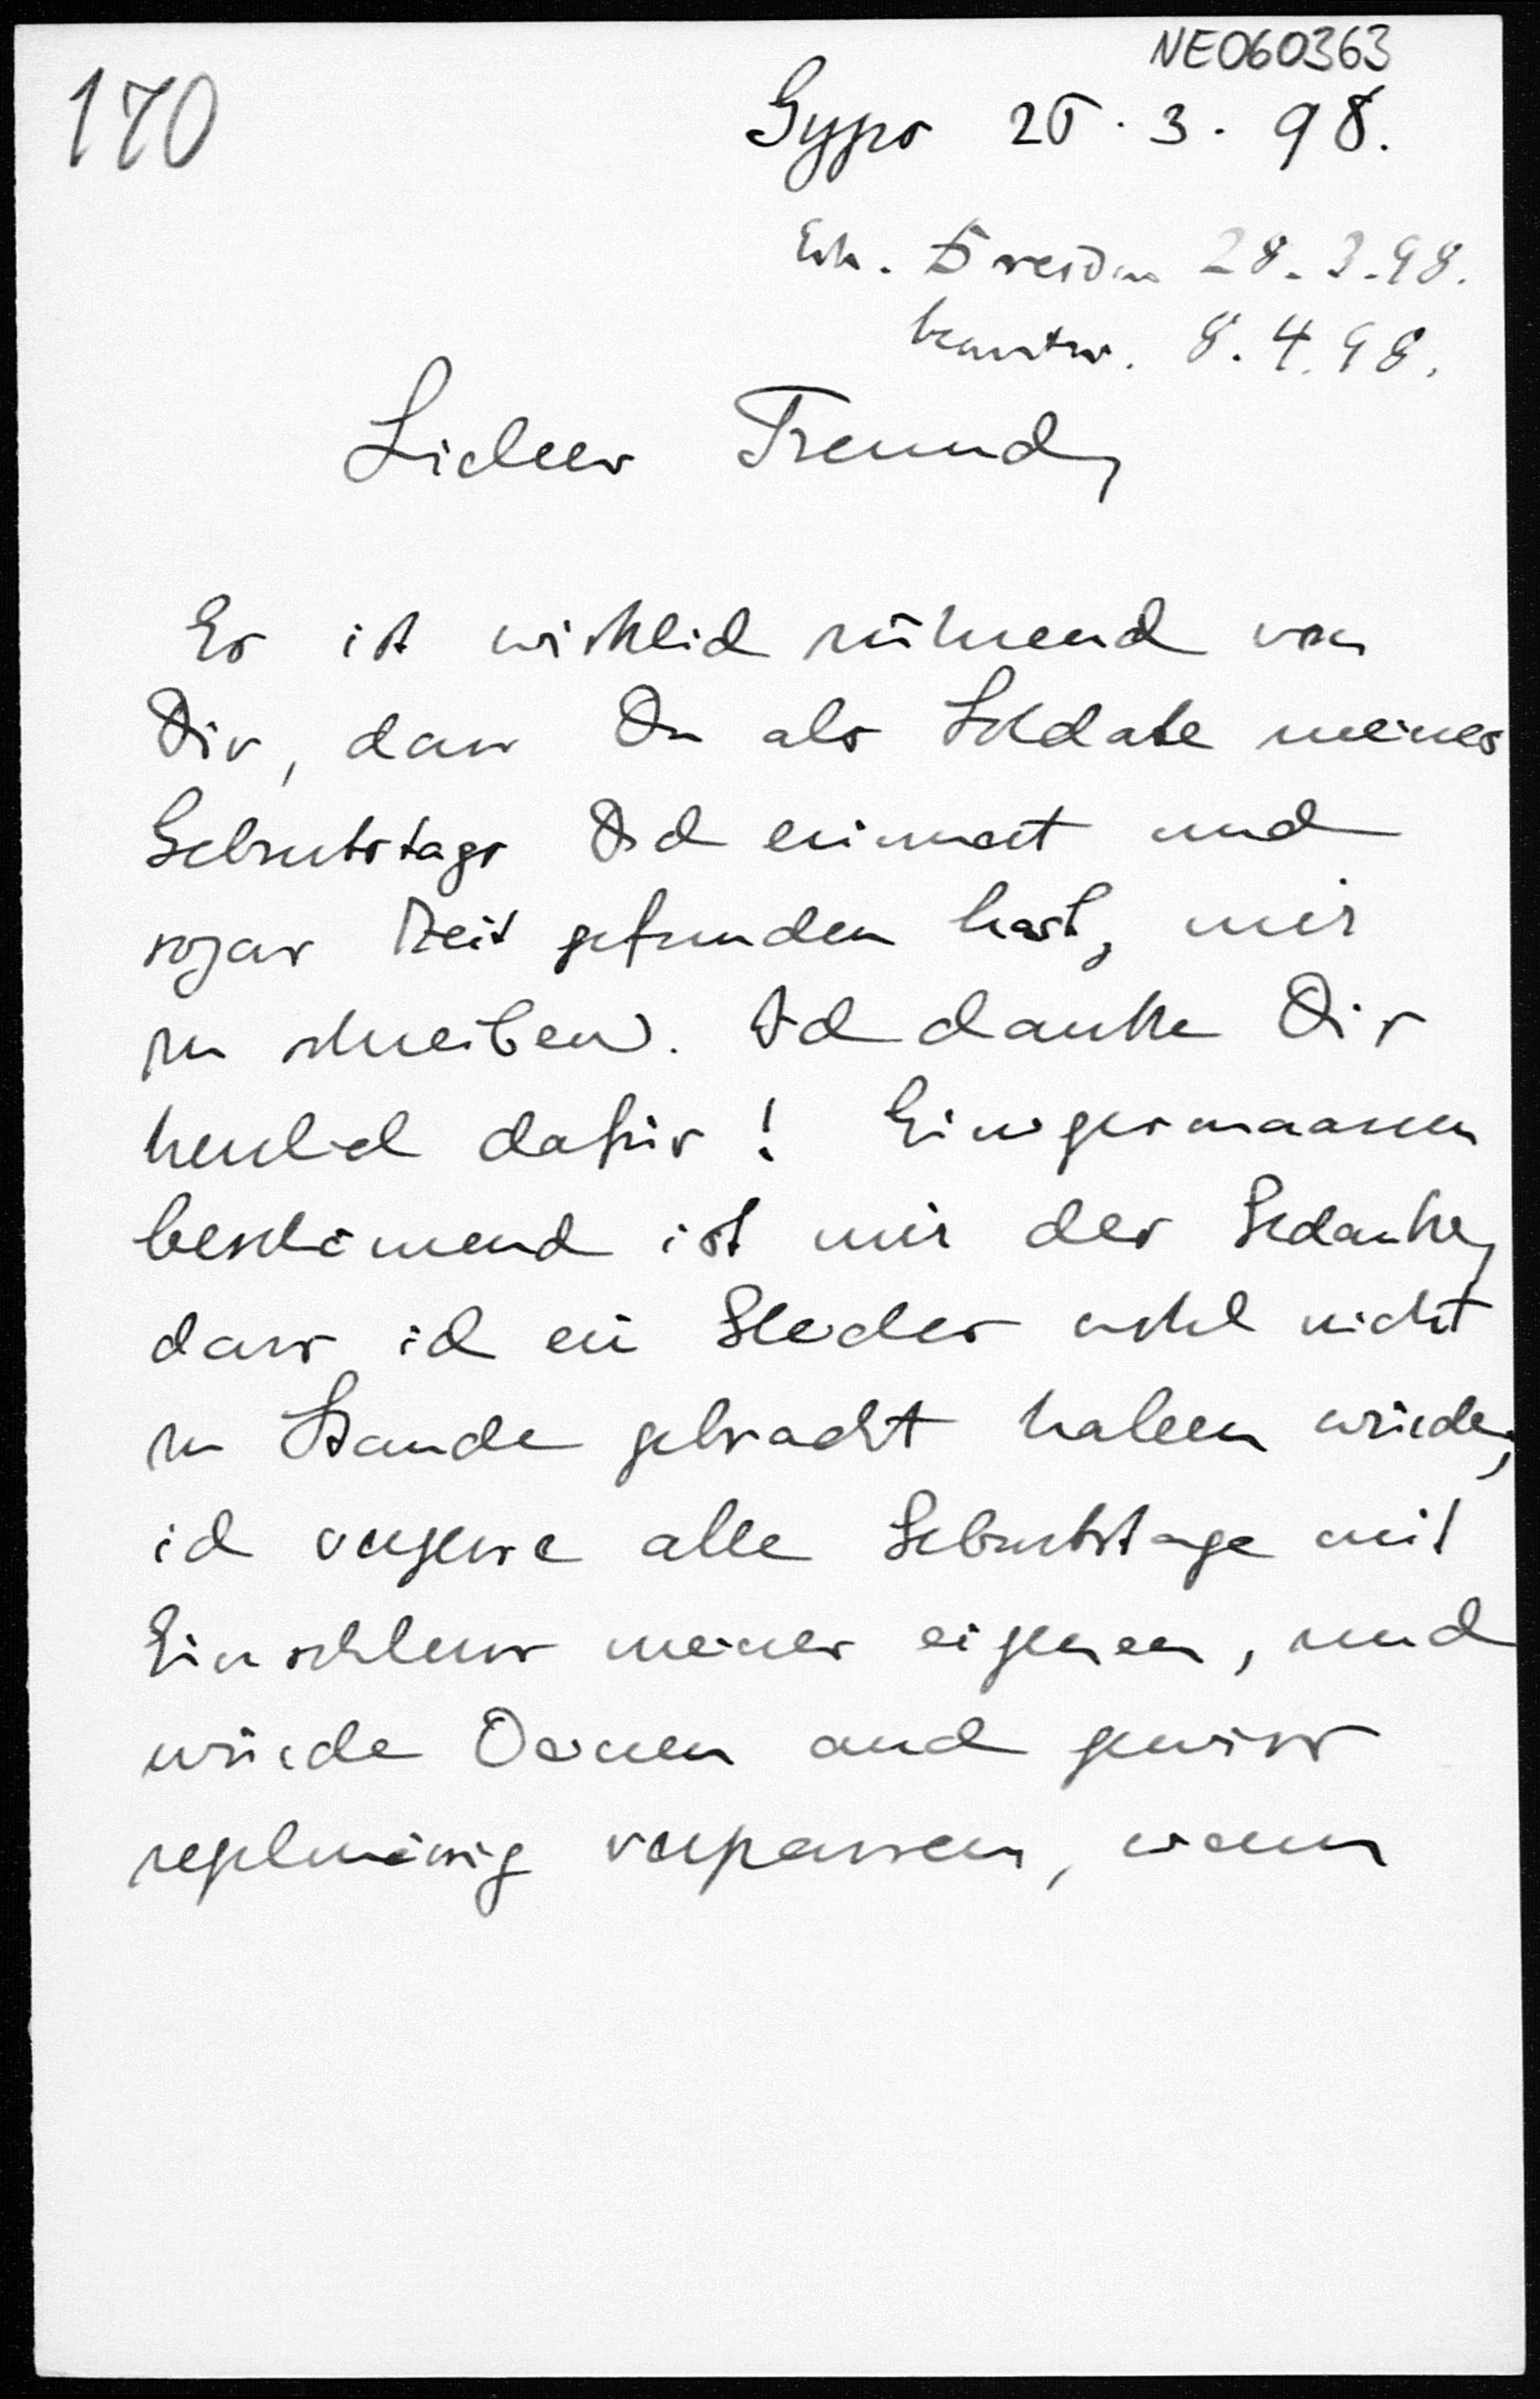 NE060363
170
Gyps 25. 3. 98.
Erh. Dresden 28. 3. 98.
beantw. 8. 4. 98.
Lieber Freund,
Es ist wirklich rührend von
Dir, dass Du als Soldate meines
Geburtstags Dich erinnert und
sogar Zeit gefunden hast, mir
zu schreiben. Ich danke Dir
herzlich dafür! Einigermaassen
beschämend ist mir der Gedanke,
dass ich ein Gleiches wohl nicht
zu Stande gebracht haben würde;
ich vergesse alle Geburtstage mit
Einschluss meines eigenen, und
würde Deinen auch gewiss
regelmässig verpassen, wenn